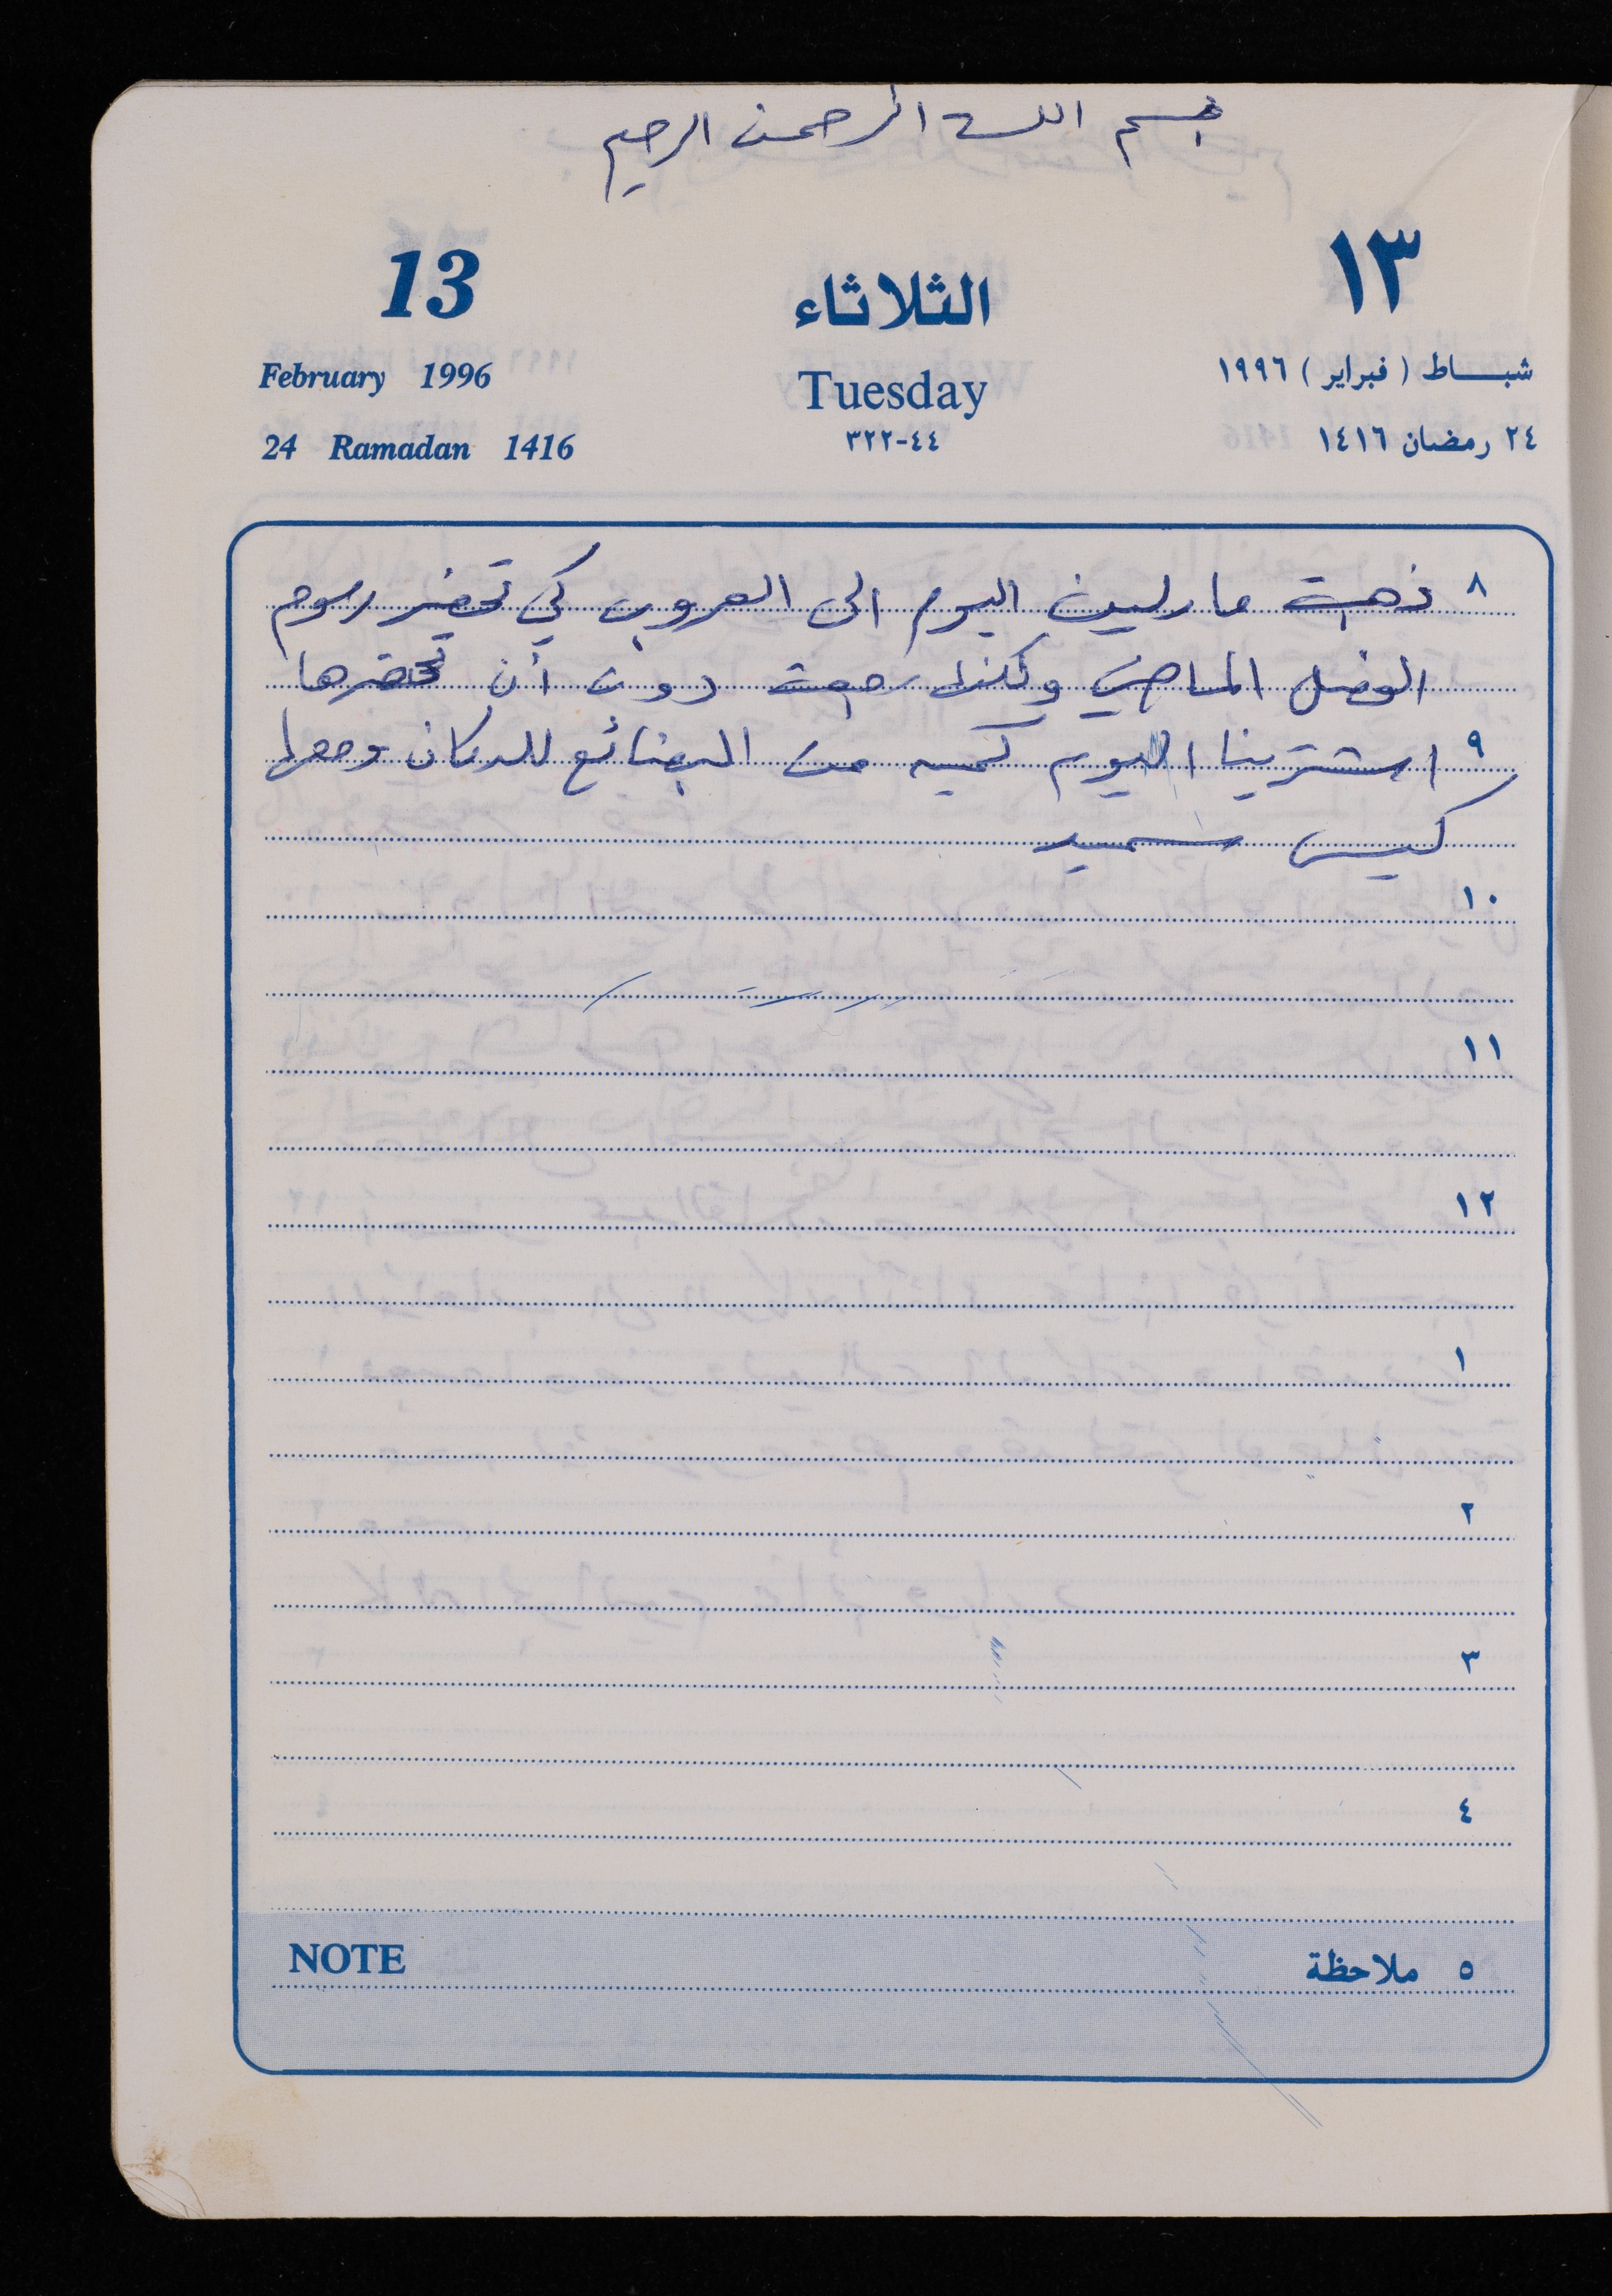 بسم الله الرحمن الرحيم
13 الثلاثاء ١٣
February 1996 Tuesday شباط (فبراير) ١٩٩٦
24 Ramadan 1416 ٣٢٢-٤٤ ٢٤ رمضان ١٤١٦
٨ ذهبت مارلين اليوم الى العروب كي تحضر رسوم
الفصل الماضي ولكنها رجعت دون أن تحضرها
٩ اشترينا اليوم كميه من البضائع للدكان ومعها
كيس سميد
١٠
١١
١٢
١
٢
٣
٤
NOTE ٥ ملاحظة